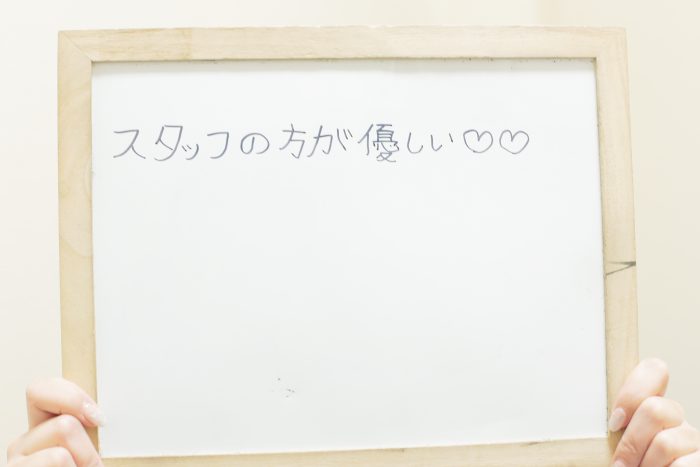 スタッフの方が優しい♡♡